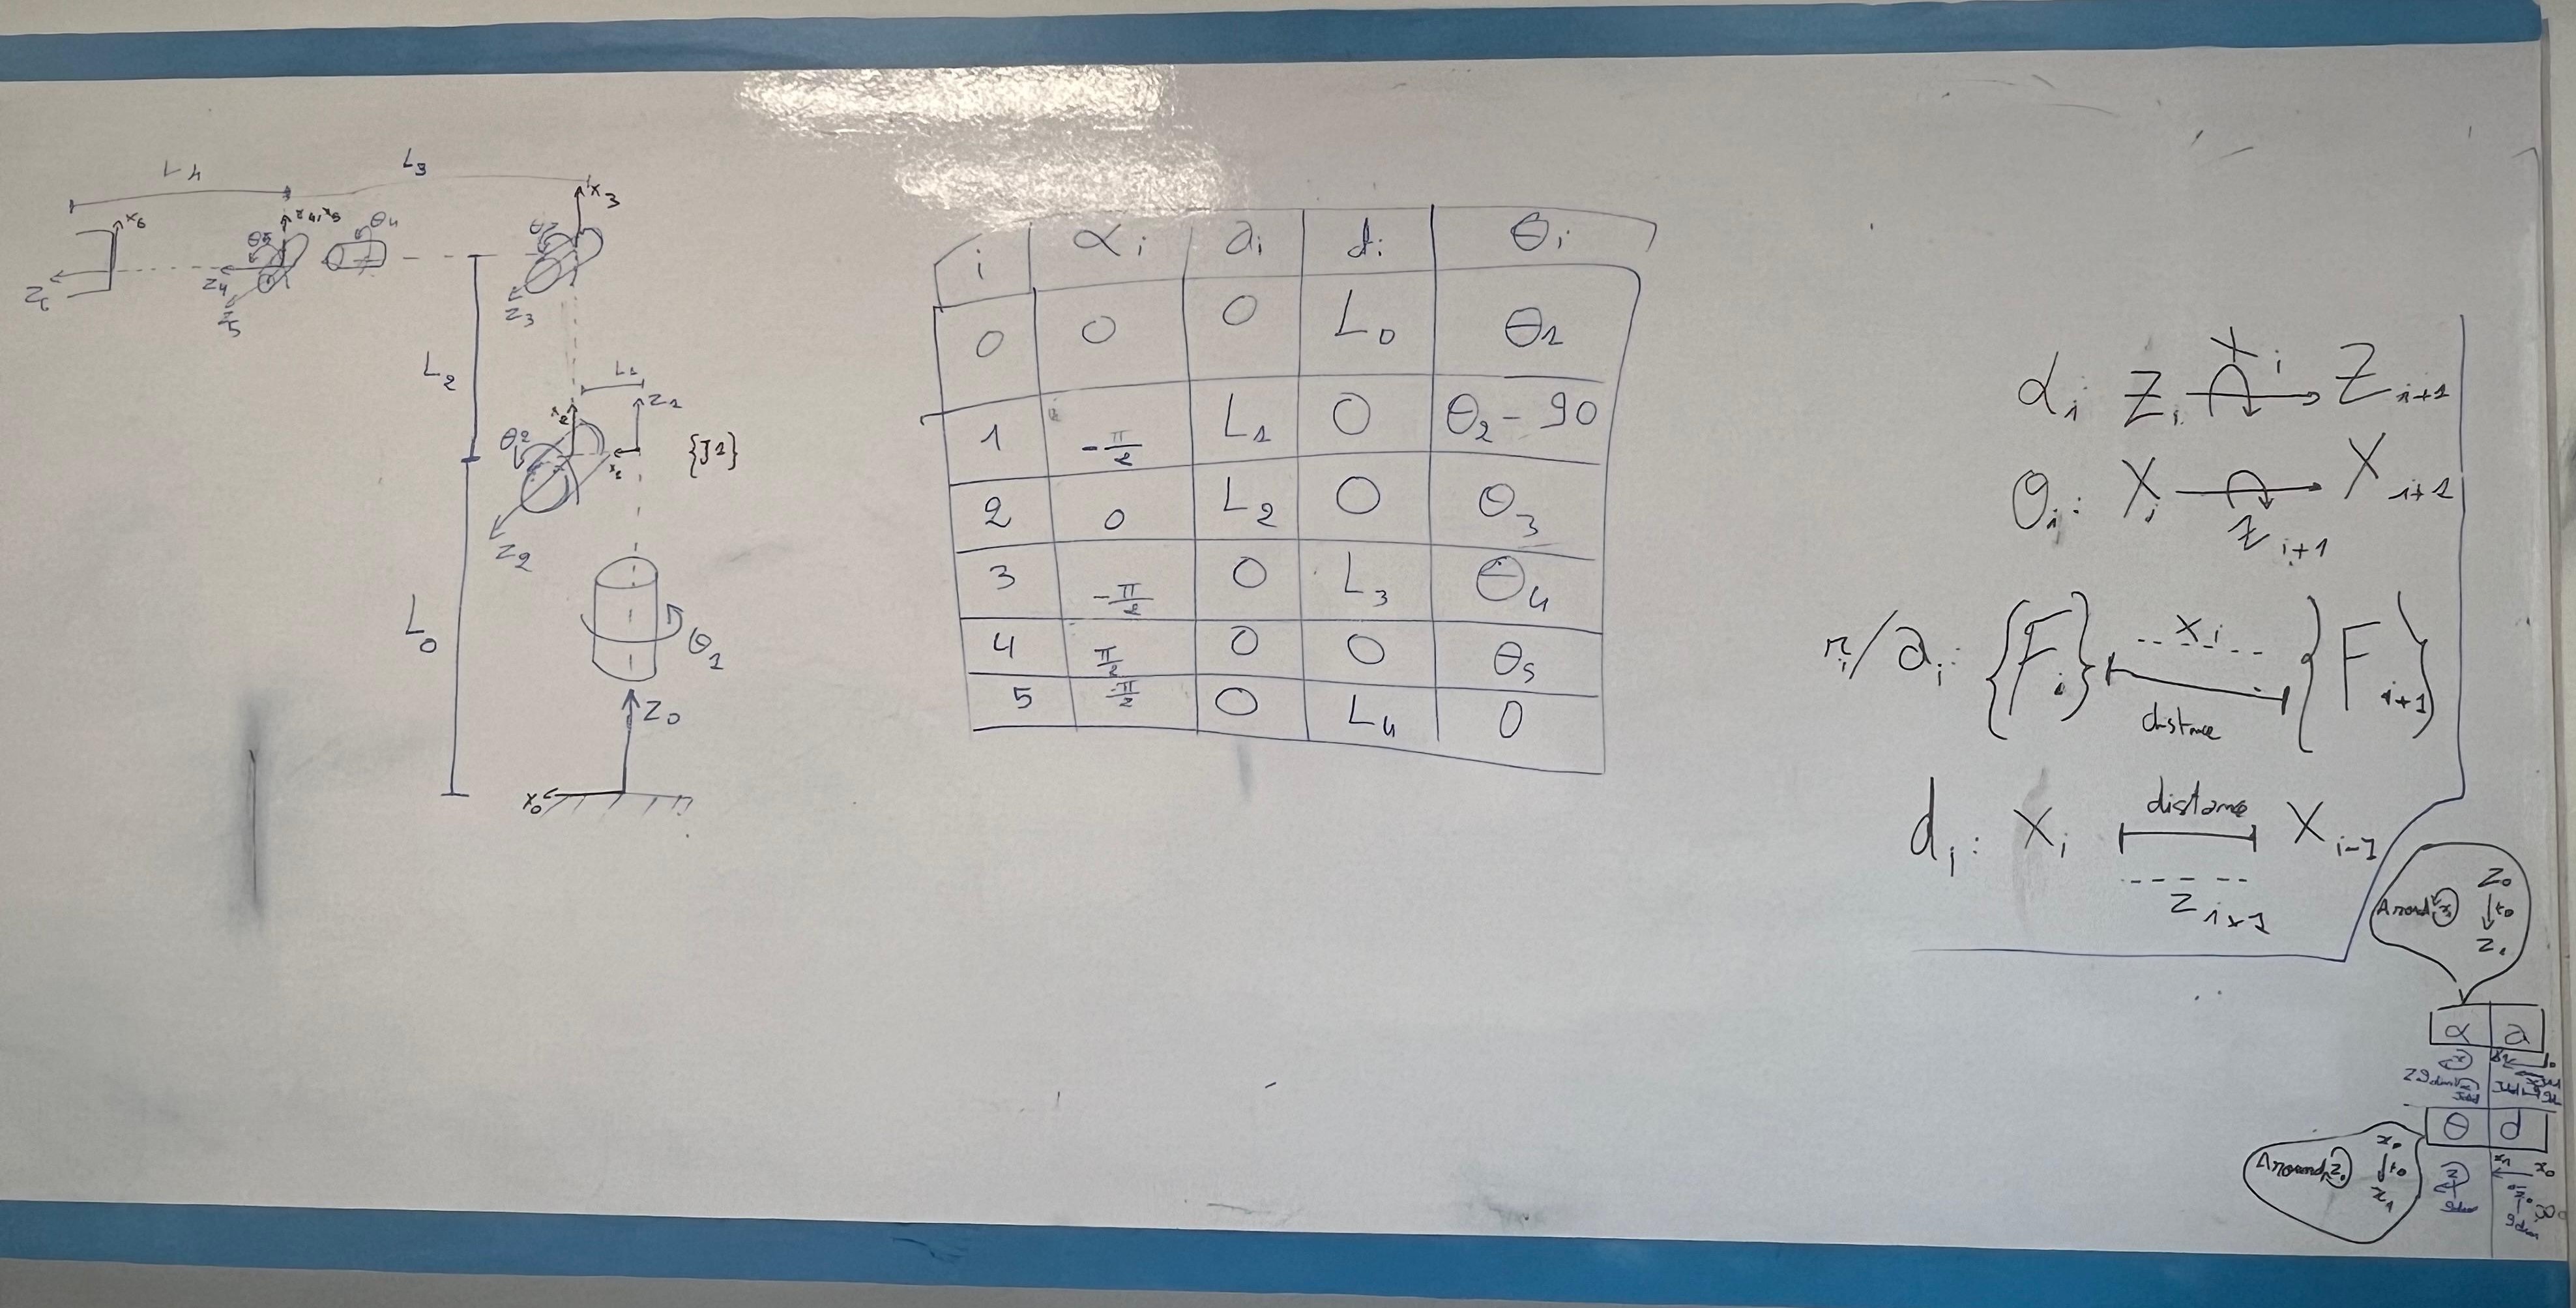 L4
L3
x6
θ5
x4,x5
θ4
Z4
Z5
θ3
x3
Z3
L2
L1
x2
Z1
θ2
x1
{J1}
Z2
L0
θ1
Z0
x0
i αi ai di θi
0 0 0 L0 θ1
1 -π/2 L1 0 θ2 - 90
2 0 L2 0 θ3
3 -π/2 0 L3 θ4
4 π/2 0 0 θ5
5 -π/2 0 L4 0
αi Zi Xi Zi+1
θi: Xi Zi+1 Xi+1
ri/ai: {Fi} Xi {Fi+1}
distance
di: Xi distance Xi-1
Zi+1
Z0
to
Z1
α a
θ d
x0
to
x1
x1 x0